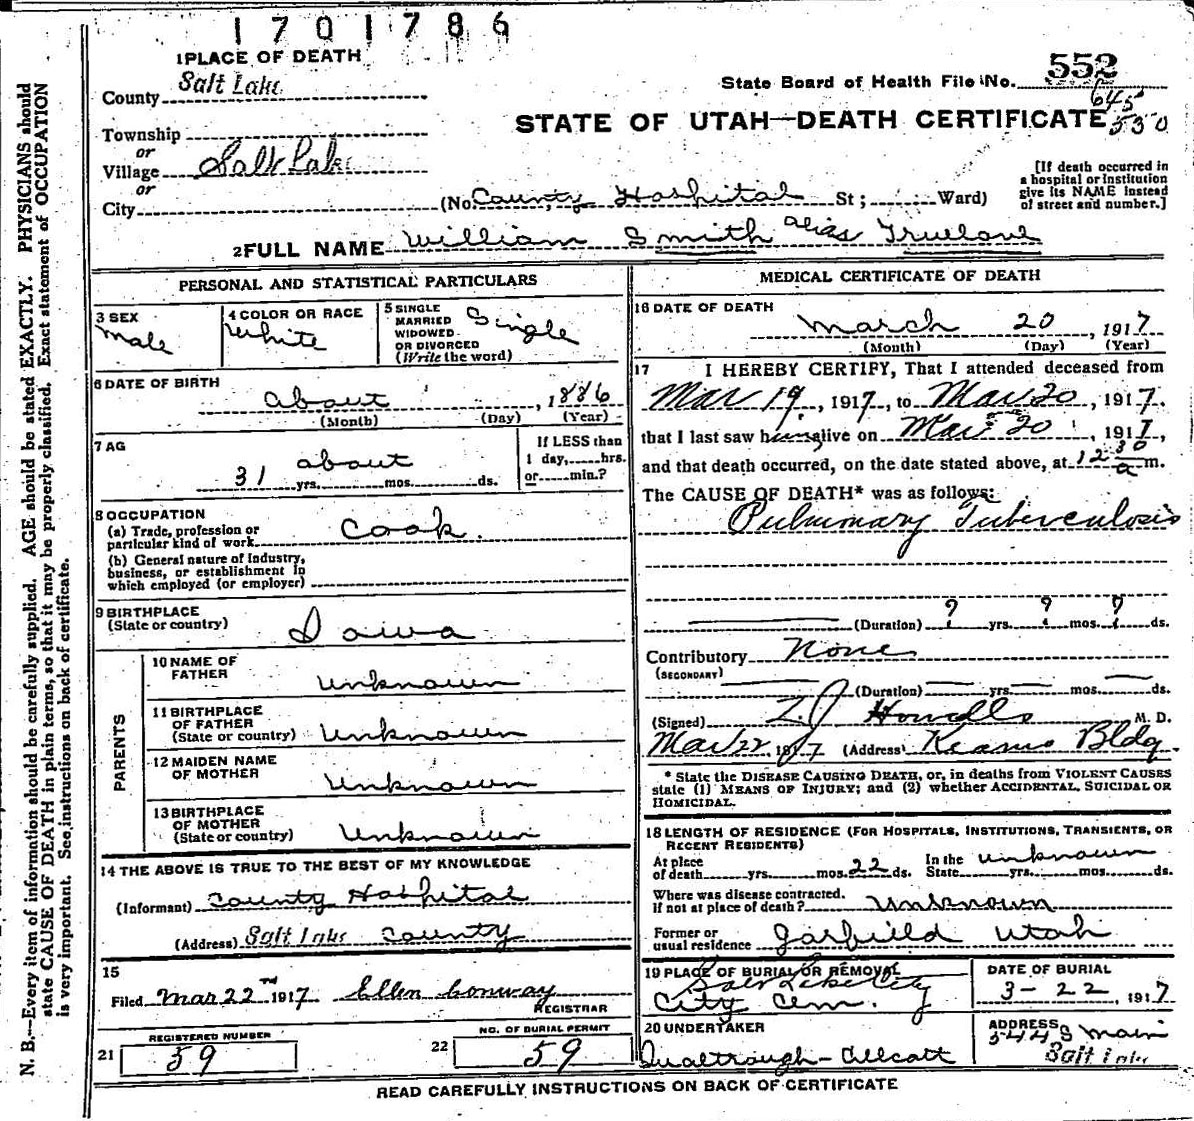 1701786
1 PLACE OF DEATH
County Salt Lake
State Board of Health File No. 552
645
530
STATE OF UTAH—DEATH CERTIFICATE
Township
or
Village Salt Lake
or
City (No. County Hospital St; Ward)
[If death occurred in
a hospital or institution
give its NAME instead
of street and number.]
2 FULL NAME William Smith alias Truelove
PERSONAL AND STATISTICAL PARTICULARS
3 SEX
Male
4 COLOR OR RACE
White
5 SINGLE
MARRIED
WIDOWED
OR DIVORCED
(Write the word)
Single
6 DATE OF BIRTH
about , 1886
(Month) (Day) (Year)
7 AG
about
31 yrs. mos. ds.
If LESS than
1 day, hrs.
or min.?
8 OCCUPATION
(a) Trade, profession or
particular kind of work Cook.
(b) General nature of Industry,
business, or establishment in
which employed (or employer)
9 BIRTHPLACE
(State or country) Iowa
PARENTS
10 NAME OF
FATHER Unknown
11 BIRTHPLACE
OF FATHER
(State or country) Unknown
12 MAIDEN NAME
OF MOTHER Unknown
13 BIRTHPLACE
OF MOTHER
(State or country) Unknown
14 THE ABOVE IS TRUE TO THE BEST OF MY KNOWLEDGE
(Informant) County Hospital
(Address) Salt Lake County
15
Filed Mar 22nd 1917 Ellen Conway
REGISTRAR
REGISTERED NUMBER
21 59
NO. OF BURIAL PERMIT
22 59
MEDICAL CERTIFICATE OF DEATH
16 DATE OF DEATH
March 20, 1917
(Month) (Day) (Year)
17 I HEREBY CERTIFY, That I attended deceased from
Mar 19, 1917, to Mar 20, 1917,
that I last saw him alive on Mar 20, 1917,
and that death occurred, on the date stated above, at 12 30 a m.
The CAUSE OF DEATH* was as follows:
Pulmonary Tuberculosis
(Duration) ? yrs. ? mos. ? ds.
Contributory None
(SECONDARY)
(Duration) yrs. mos. ds.
(Signed) Howells M. D.
Mar 22 1917 (Address) Kearns Bldg.
* State the DISEASE CAUSING DEATH, or, in deaths from VIOLENT CAUSES
state (1) MEANS OF INJURY; and (2) whether ACCIDENTAL, SUICIDAL OR
HOMICIDAL.
18 LENGTH OF RESIDENCE (FOR HOSPITALS, INSTITUTIONS, TRANSIENTS, OR
RECENT RESIDENTS)
At place
of death yrs. mos. 22 ds.
In the
State unknown yrs. mos. ds.
Where was disease contracted,
if not at place of death? Unknown
Former or
usual residence Garfield Utah
19 PLACE OF BURIAL OR REMOVAL
Salt Lake City
City Cem.
DATE OF BURIAL
3-22, 1917
20 UNDERTAKER
Qualtrough-Allcott
ADDRESS
544 S Main
Salt Lake
READ CAREFULLY INSTRUCTIONS ON BACK OF CERTIFICATE
N. B.—Every item of information should be carefully supplied. AGE should be stated EXACTLY. PHYSICIANS should
state CAUSE OF DEATH in plain terms, so that it may be properly classified. Exact statement of OCCUPATION
is very important. See instructions on back of certificate.